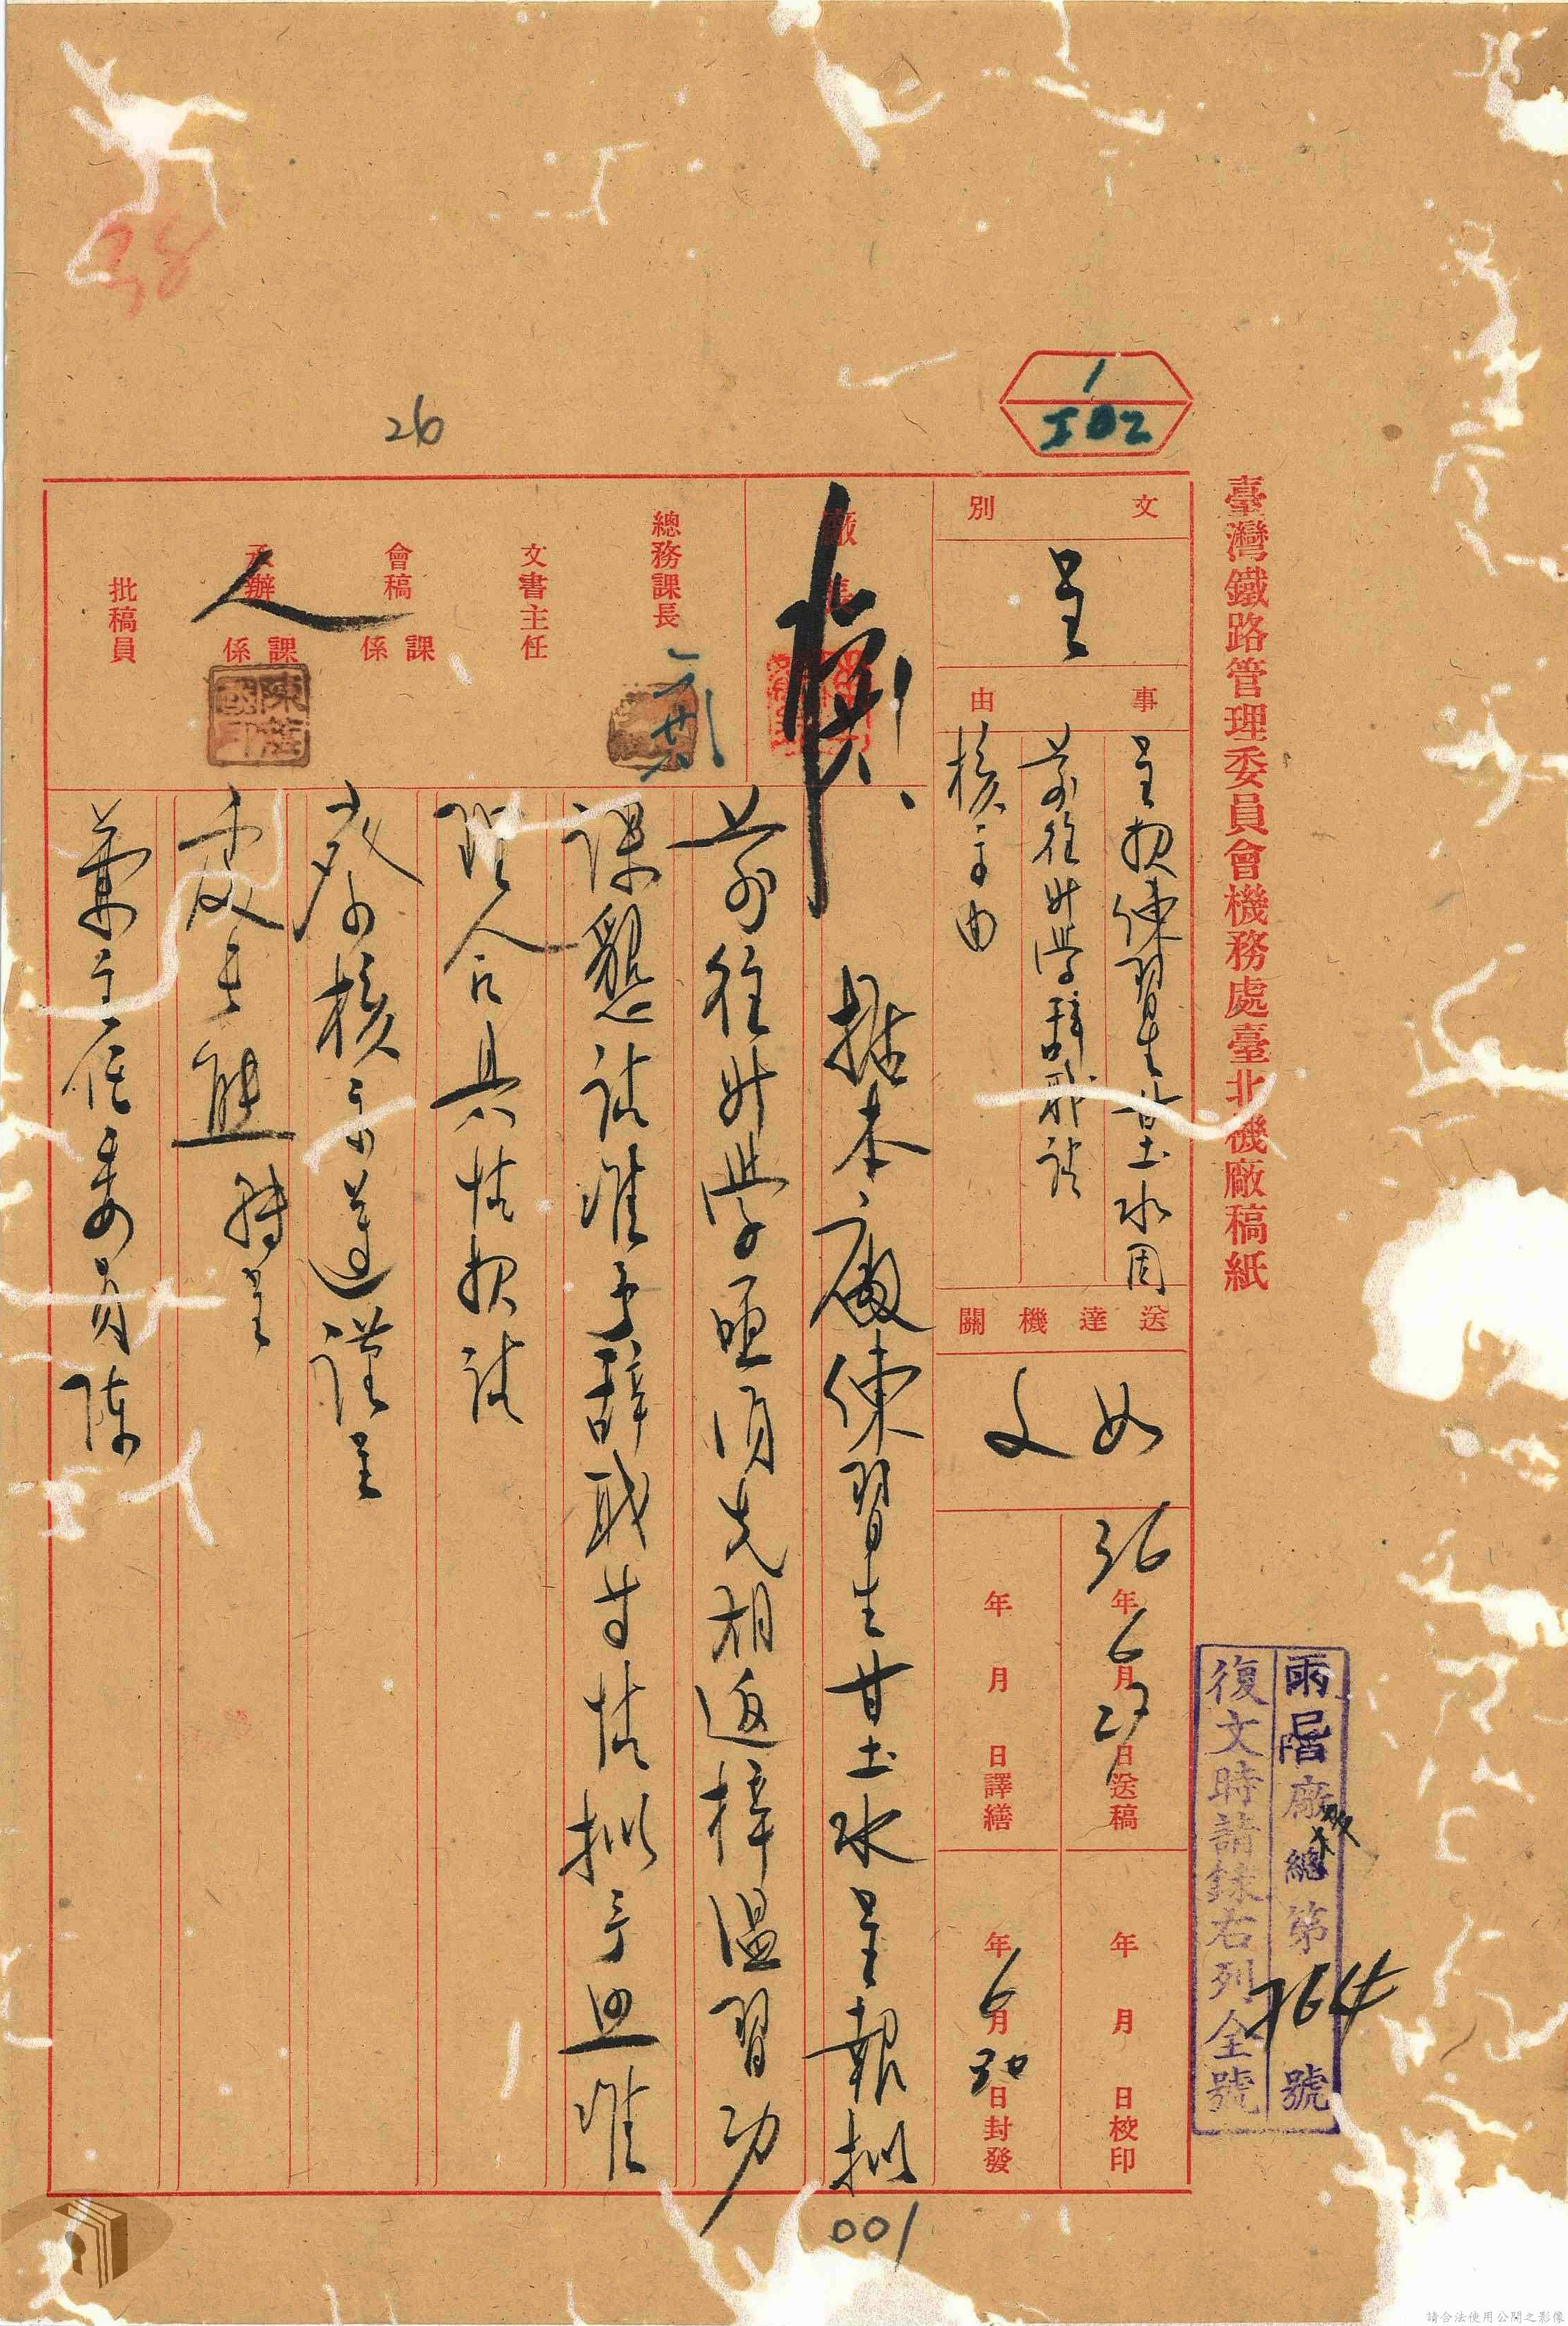 臺灣鐵路管理委員會機務處臺北機廠稿紙
38
26
1
502
文別
呈
事由
呈報練習生甘土水因
前往升學辭職請
核示由
送達機關
如文
36年6月27日送稿
年月日校印
年月日譯繕
年6月30日封發
廠長
總務課長
文書主任
會稿課係
承辦課係
人
批稿員
據本廠練習生甘土水呈報擬
前往升學亟須先期返梓溫習功
課懇請准予辭職等情擬予照准
理合具情報請
察核示遵謹呈
處長
轉呈
兼主任委員陳
雨階廠總第764號
復文時請錄右列全號
001
請合法使用公開之影像